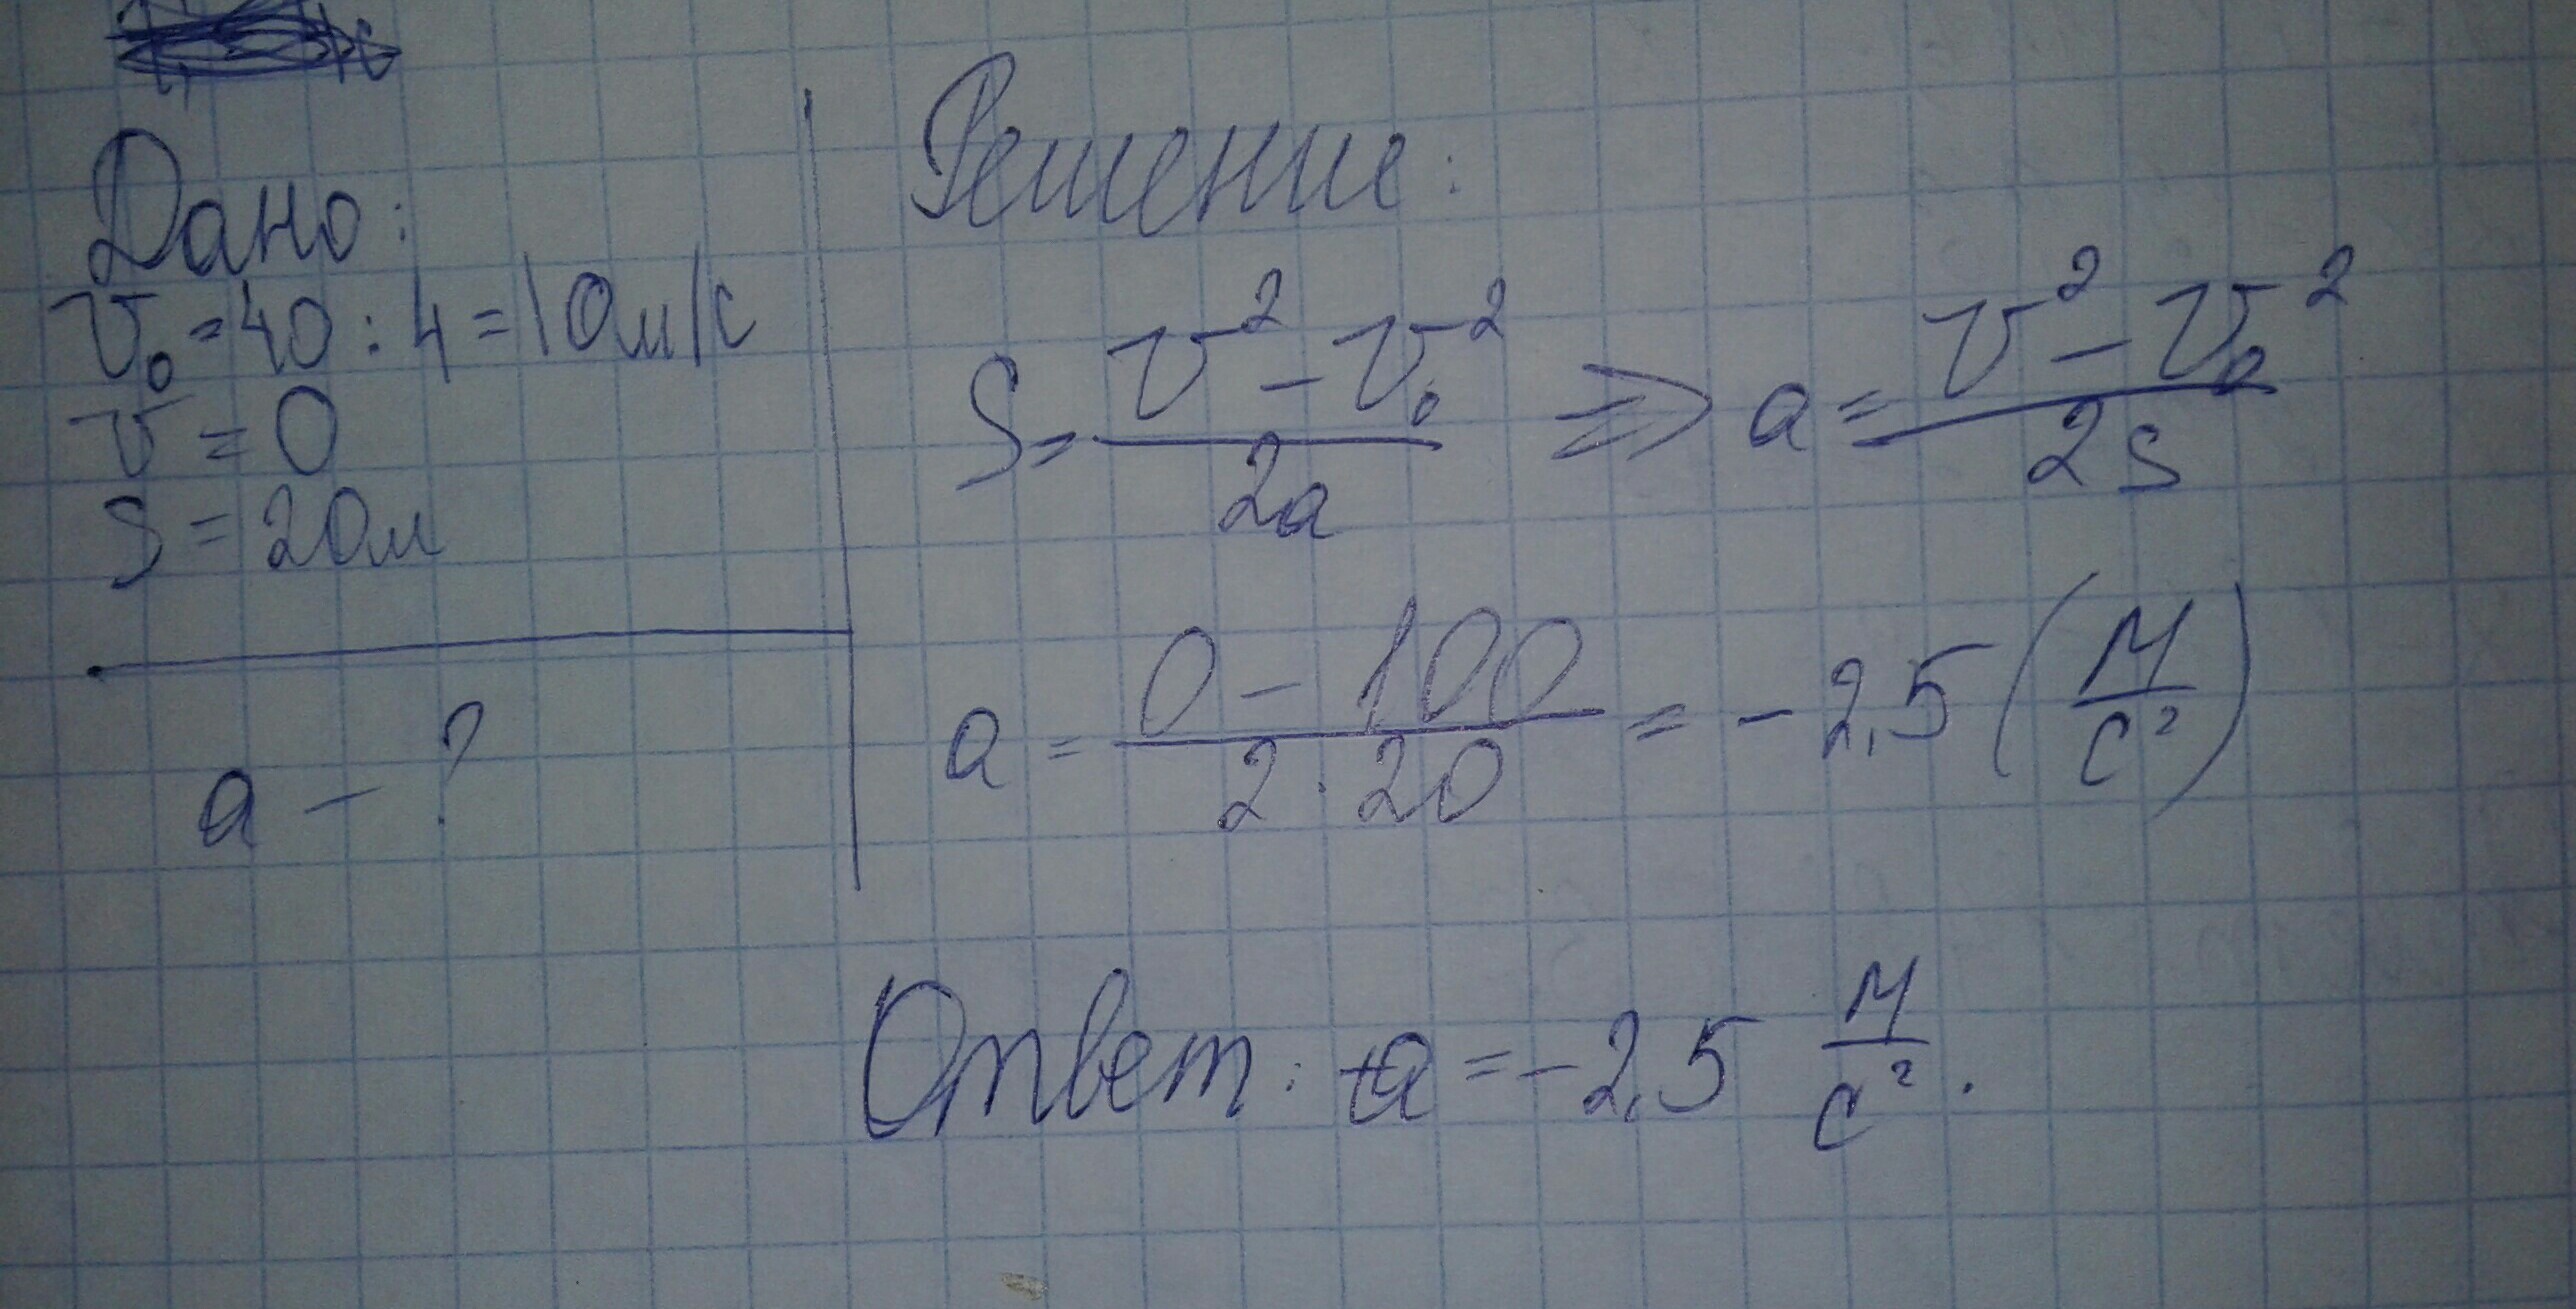 Дано:
v₀ = 40 : 4 = 10 м/с
v = 0
S = 20м
a - ?
Решение:
S = (v² - v₀²) / 2a => a = (v² - v₀²) / 2S
a = (0 - 100) / (2 · 20) = - 2,5 (м/с²)
Ответ: a = - 2,5 м/с².